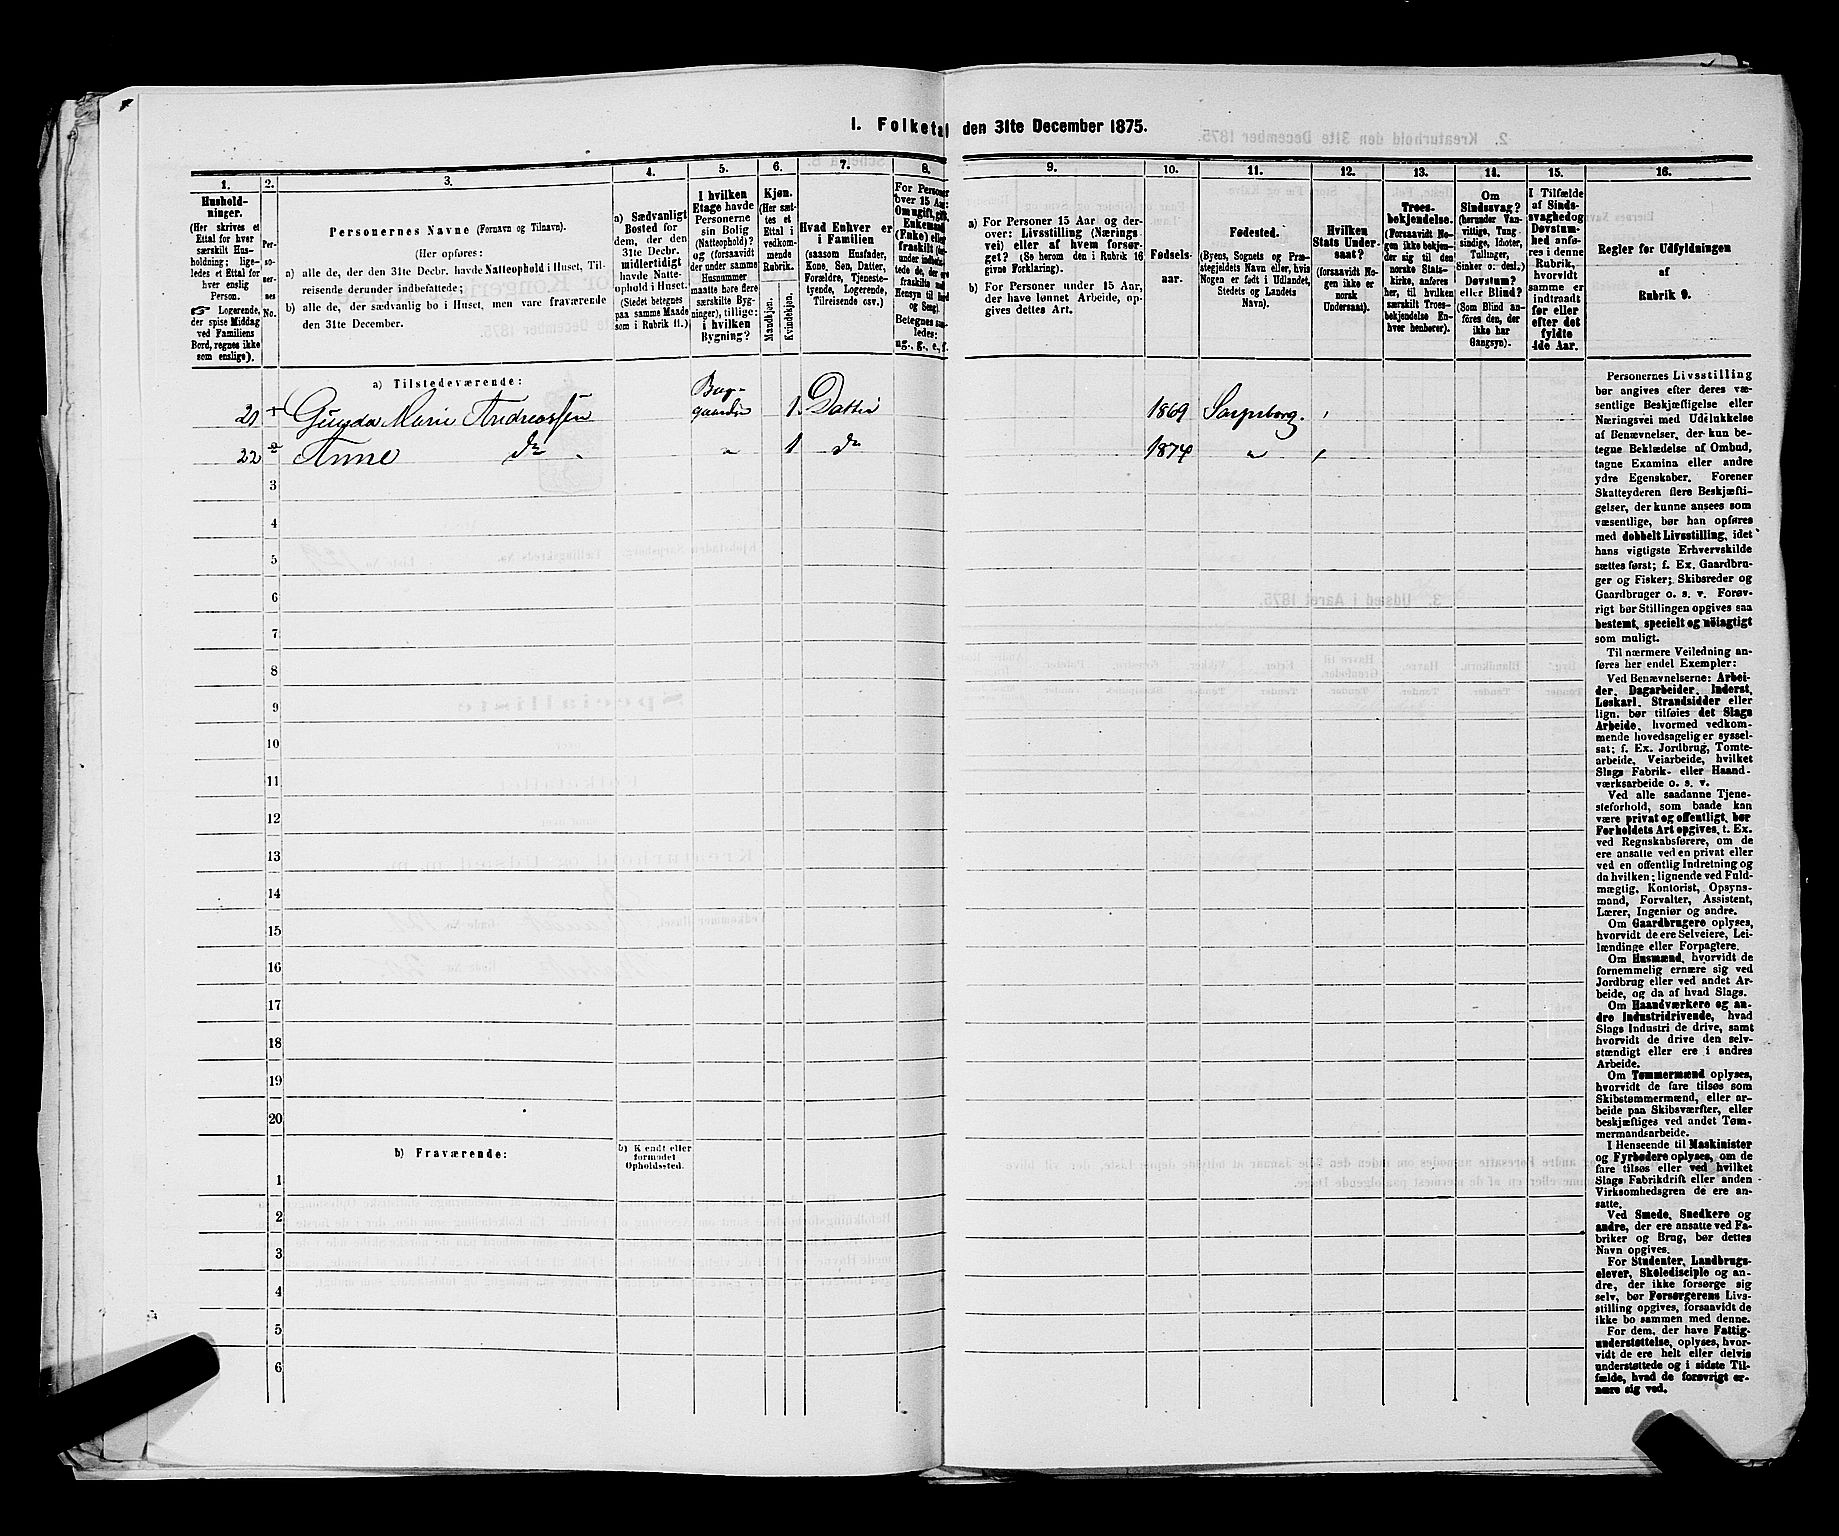 I. Folketal den 31te December 1875.
1.
2.
3.
4.
5.
6.
7.
8.
9.
10.
11.
12.
13.
14.
15.
16.
Hushold-
ninger.
(Her skrives et
Ettal for hver
særskilt Hus-
holdning; lige-
ledes et Ettal for
hver enslig
Person.
☞ Logerende,
der spise Middag
ved Familiens
Bord, regnes ikke
som enslige).
Per-
so-
ner-
nes
No.
Personernes Navne (Fornavn og Tilnavn).
(Her opføres:
a) alle de, der den 31te Decbr. havde Natteophold i Huset, Til-
reisende derunder indbefattede;
b) alle de, der sædvanlig bo i Huset, men vare fraværende
den 31te December.
a) Sædvanligt
Bosted for
dem, der den
31te Decbr.
midlertidigt
havde Natte-
ophold i Huset.
(Stedet betegnes
paa samme Maade
som i Rubrik 11.)
I hvilken
Etage havde
Personerne
sin Bolig
(Natteophold)?
og (forsaavidt
der under samme
Husnummer
maatte høre flere
særskilte Byg-
ninger), tillige:
i hvilken
Bygning?
Kjøn.
(Her sæt-
tes et
Ettal i
vedkom-
mende
Rubrik.
Mandkjøn.
Kvindekjøn.
Hvad Enhver er
i Familien
(saasom Husfader,
Kone, Søn, Datter,
Forældre, Tjeneste-
tyende, Logerende,
Tilreisende osv.)
For Personer
over 15 Aar:
Om ugift, gift,
Enkemand
(Enke) eller
fraskilt
ledes:
ug., g., e., f.
a) For Personer 15 Aar og der-
over: Livsstilling (Nærings-
vei) eller af hvem forsør-
get? (Se herom den i Rubrik 16
givne Forklaring).
b) For Personer under 15 Aar,
der have lønnet Arbeide, op-
gives dettes Art.
Fødsels-
aar.
Fødested.
(Byens, Sognets og Præ-
stegjeldets Navn eller, hvis
Nogen er født i Udlandet,
Stedets og Landets
Navn).
Hvilken
Stats Under-
saat?
(forsaavidt No-
gen ikke er
norsk
Undersaat).
Troes-
bekjendelse.
(Forsaavidt No-
gen ikke bekjen-
der sig til den
norske Stats-
kirke, anføres
her, til hvilken
særskilt Troes-
bekjendelse En-
hver henhører).
Om
Sindssvag?
(herunder Van-
vittige, Tung-
sindige, Idioter,
Tullinger,
Sinker o: desl.)
Døvstum?
eller Blind?
(Som Blind an-
føres den, der
ikke har
Gangsyn).
I Tilfælde
af Sinds-
svaghed og
Døvstum-
hed anfø-
res i denne
Rubrik,
hvorvidt
samme er
indtraadt
før eller
efter det
fyldte
4de Aar.
Regler for Udfyldningen
af
Rubrik 9.
a) Tilstedeværende:
21 Gunda Marie Andreassen Bag-
gaarden 1 Datter 1869 Sarpsborg. ,
22 2 Anne do „ 1 do 1874 „ ,
3
4
5
6
7
8
9
10
11
12
13
14
15
16
17
18
19
20
b) Fraværende:
b) Kjendt eller
formodet
Opholdssted.
1
2
3
4
5
6
Personernes Livsstilling
bør angives efter deres væ-
sentlige Beskjæftigelse eller
Næringsvei med Udelukkelse
af Benævnelser, der kun be-
tegne Beklædelse af Ombud,
tagne Examina eller andre
ydre Egenskaber. Forener
Skatteyderen flere Beskjæfti-
gelser, der kunne ansees som
væsentlige, bør han opføres
med dobbelt Livsstilling, idet
hans vigtigste Erhvervskilde
sættes først; f. Ex. Gaardbru-
ger og Fisker; Skibsreder og
Gaardbruger o. s. v. Forøv-
rigt bør Stillingen opgives saa
bestemt, specielt og nöiagtigt
som muligt.
Til nærmere Veiledning an-
føres her endel Exempler:
Ved Benævnelserne: Arbei-
der, Dagarbeider, Inderst,
Løskarl, Strandsidder eller
lign. bør tilføies det Slags
Arbeide, hvormed vedkom-
mende hovedsagelig er syssel-
sat; f. Ex. Jordbrug, Tomte-
arbeide, Veiarbeide, hvilket
Slags Fabrik- eller Haand-
værksarbeide o. s. v.
Ved alle saadanne Tjene-
steforhold, som baade kan
være privat og offentligt, bør
Forholdets Art opgives, t. Ex.
ved Regnskabsførere, om de
ere ansatte ved en privat eller
ved en offentlig Indretning og
da hvilken; lignende ved Fuld-
mægtig, Kontorist, Opsyns-
mand, Forvalter, Assistent,
Lærer, Ingeniør og andre.
Om Gaardbrugere oplyses,
hvorvidt de ere Selveiere, Lei-
lændinge eller Forpagtere.
Om Husmænd, hvorvidt de
fornemmelig ernære sig ved
Jordbrug eller ved andet Ar-
beide, og da af hvad Slags.
Om Haandværkere og an-
dre Industridrivende, hvad
Slags Industri de drive, samt
hvorvidt de drive den selv-
stændigt eller ere i andres
Arbeide.
Om Tømmermænd oplyses,
hvorvidt de fare tilsøs som
Skibstømmermænd, eller ar-
beide paa Skibsværfter, eller
beskjæftiges ved andet Tøm-
mermandsarbeide.
I Henseende til Maskinister
og Fyrbødere oplyses, om de
fare tilsøs eller ved hvilket
Slags Fabrikdrift eller anden
Virksomhedsgren de ere an-
satte.
Ved Smede, Snedkere og
andre, der ere ansatte ved Fa-
briker og Brug, bør dettes
Navn opgives.
For Studenter, Landbrugs-
elever, Skoledisciple og an-
dre, der ikke forsørge sig
selv, bør Forsørgerens Livs-
stilling opgives, forsaavidt de
ikke bo sammen med denne.
For dem, der have Fattig-
understøttelse, oplyses, hvor-
vidt de ere helt eller delvis
understøttede og i sidste Til-
fælde, hvad de forøvrigt er-
nære sig ved.